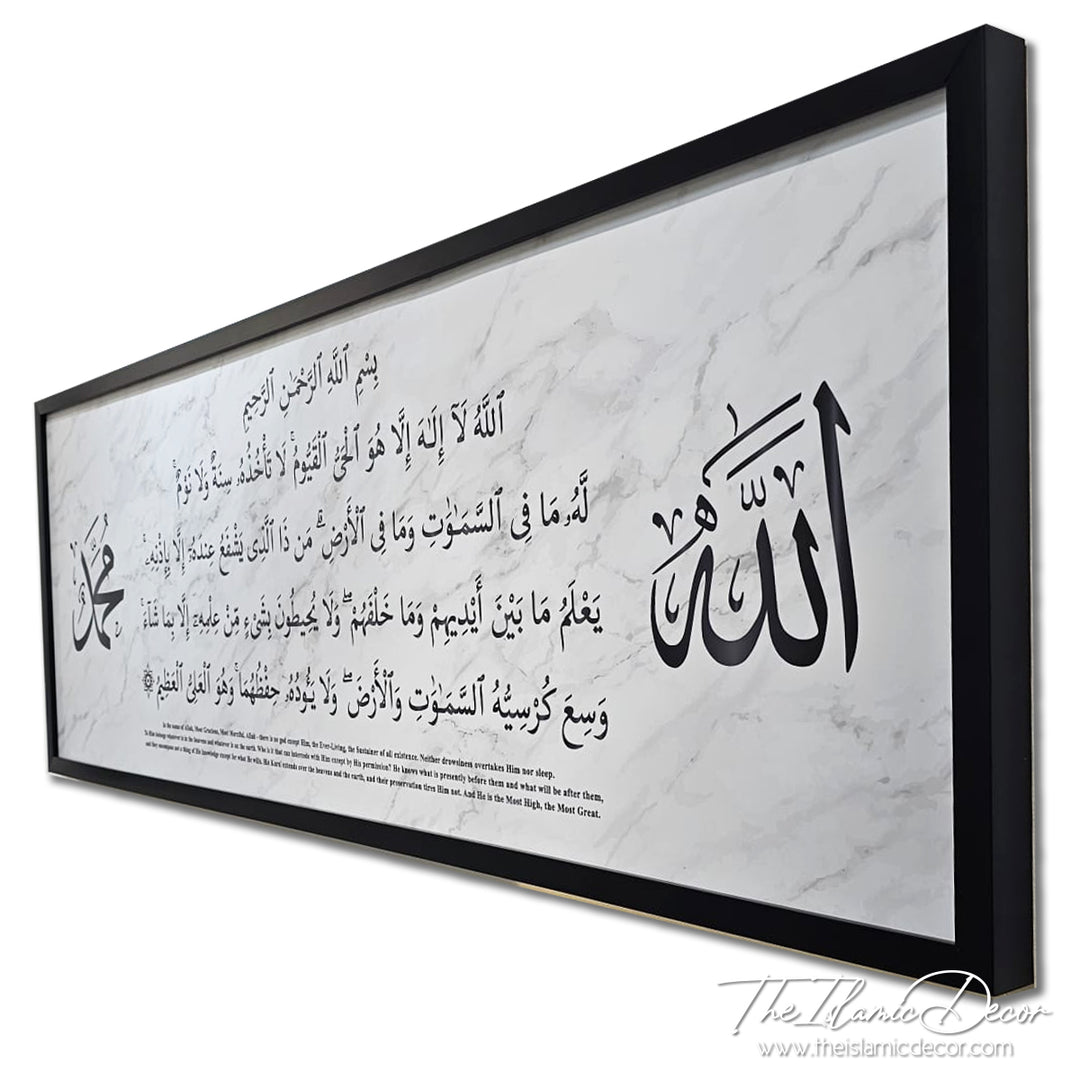 بِسْمِ ٱللَّهِ ٱلرَّحْمَـٰنِ ٱلرَّحِيمِ
ٱللَّهُ لَآ إِلَـٰهَ إِلَّا هُوَ ٱلْحَىُّ ٱلْقَيُّومُ ۚ لَا تَأْخُذُهُۥ سِنَةٌ وَلَا نَوْمٌ ۚ
لَّهُۥ مَا فِى ٱلسَّمَـٰوَٰتِ وَمَا فِى ٱلْأَرْضِ ۗ مَن ذَا ٱلَّذِى يَشْفَعُ عِندَهُۥٓ إِلَّا بِإِذْنِهِۦ ۚ
يَعْلَمُ مَا بَيْنَ أَيْدِيهِمْ وَمَا خَلْفَهُمْ ۖ وَلَا يُحِيطُونَ بِشَىْءٍ مِّنْ عِلْمِهِۦٓ إِلَّا بِمَا شَآءَ ۚ
وَسِعَ كُرْسِيُّهُ ٱلسَّمَـٰوَٰتِ وَٱلْأَرْضَ ۖ وَلَا يَـُٔودُهُۥ حِفْظُهُمَا ۚ وَهُوَ ٱلْعَلِىُّ ٱلْعَظِيمُ ۞
In the name of Allah, Most Gracious, Most Merciful, Allah - there is no god except Him, the Ever-Living, the Sustainer of all existence. Neither drowsiness overtakes Him nor sleep.
To Him belongs whatever is in the heavens and whatever is on the earth. Who is it that can intercede with Him except by His permission? He knows what is presently before them and what will be after them,
and they encompass not a thing of His knowledge except for what He wills. His Kursi extends over the heavens and the earth, and their preservation tires Him not. And He is the Most High, the Most Great.
ٱللَّهُ
مُحَمَّد
The Islamic Decor
www.theislamicdecor.com